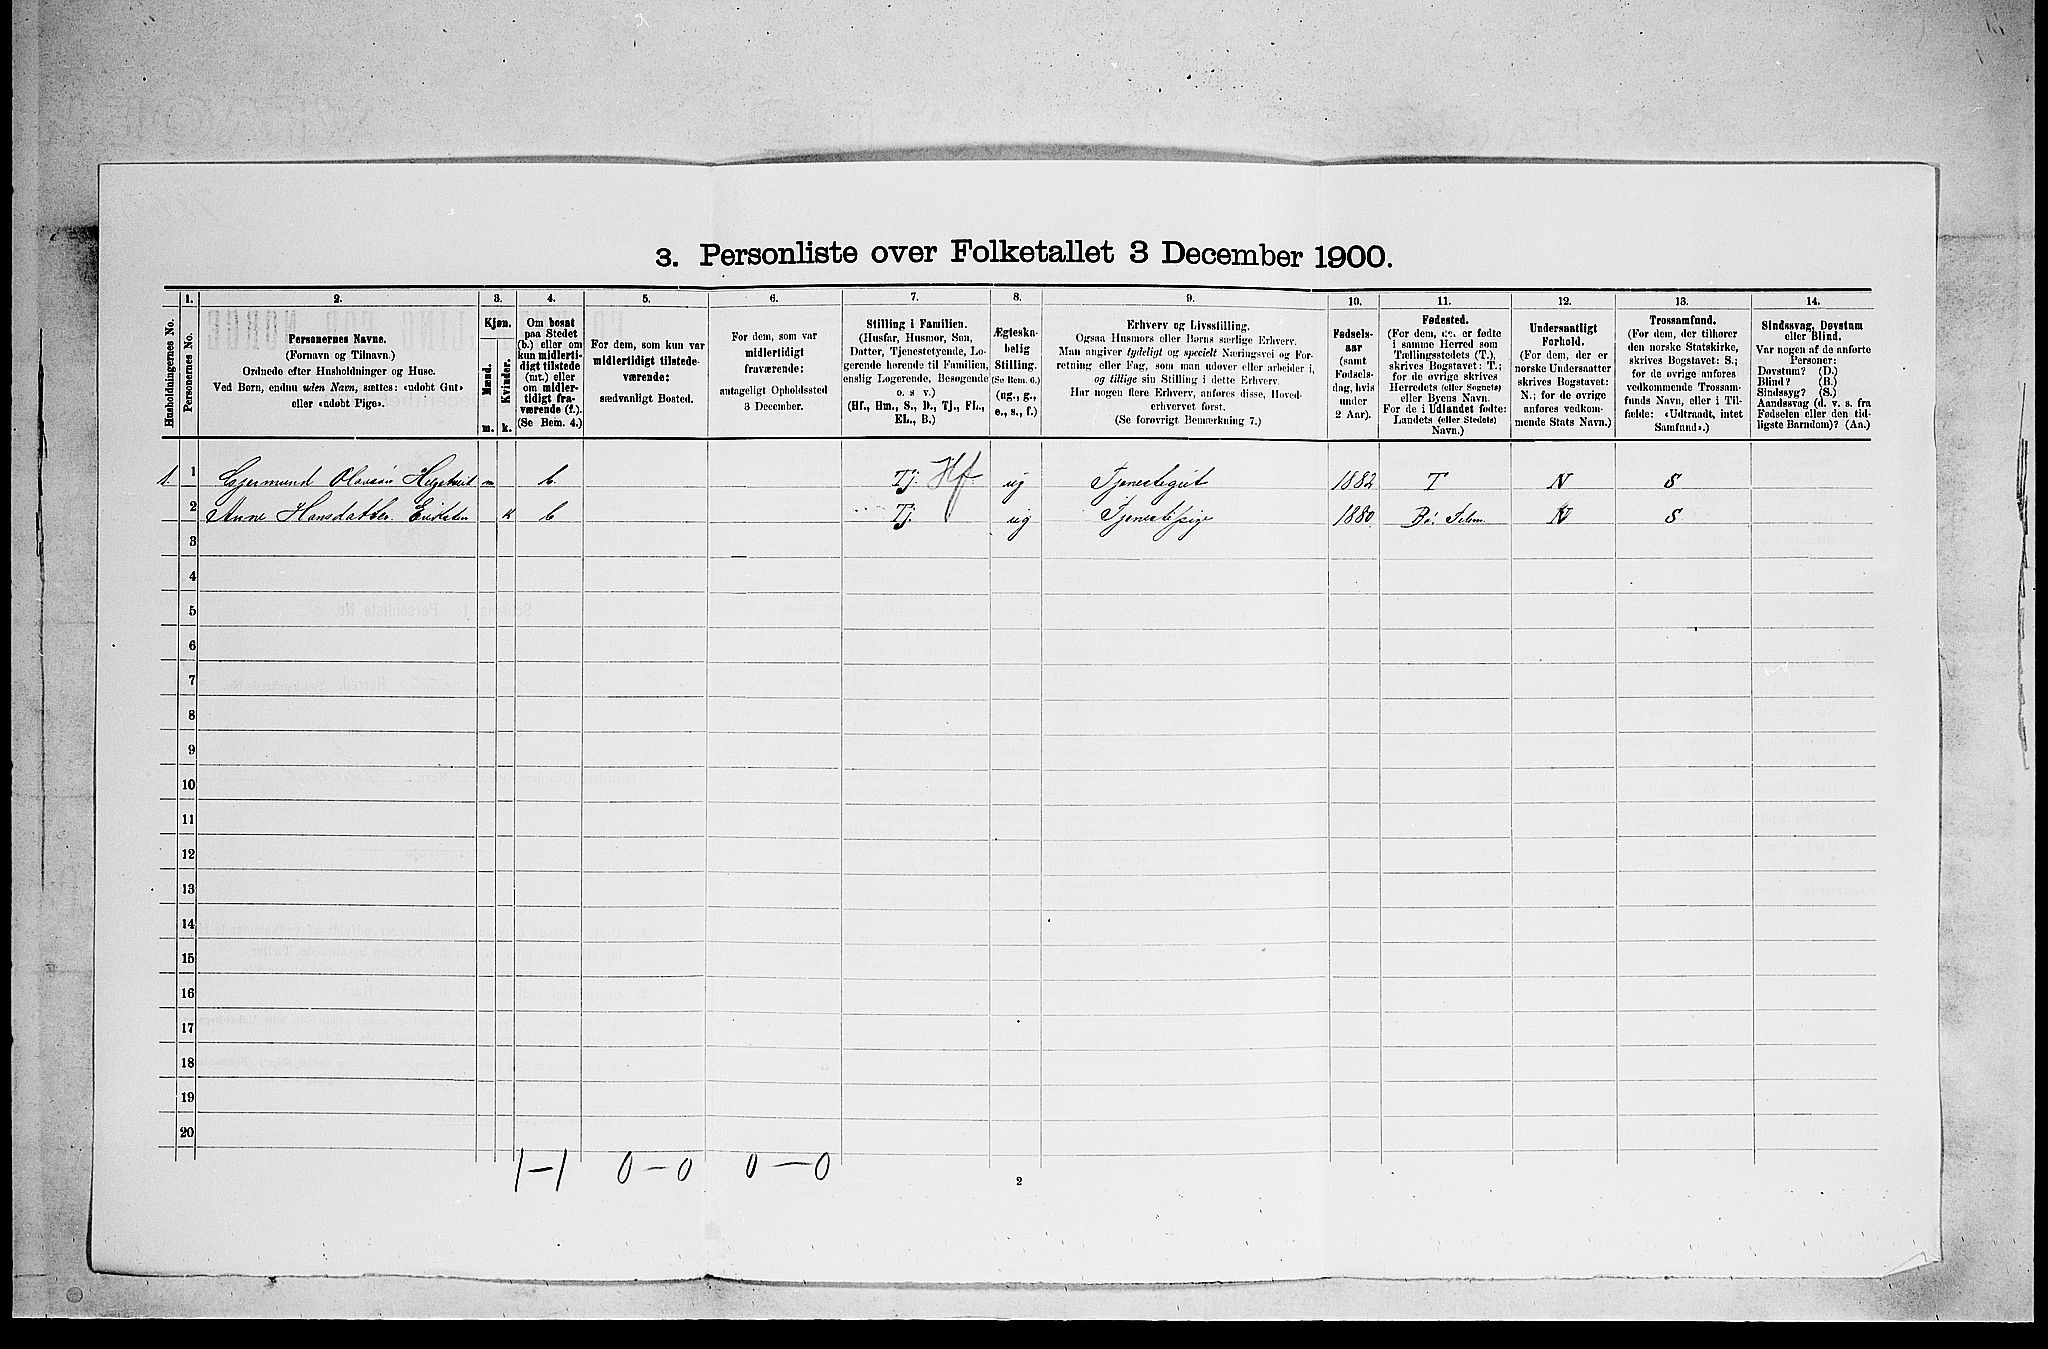 3. Personliste over Folketallet 3 December 1900.
1. 2. 3. 4. 5. 6. 7. 8. 9. 10. 11. 12. 13. 14.
Husholdningernes No.
Personernes No.
Personernes Navne.
(Fornavn og Tilnavn.)
Ordnede efter Husholdninger og Huse.
Ved Børn, endnu uden Navn, sættes: «udøbt Gut»
eller «udøbt Pige».
Kjøn.
Mænd.
Kvinder.
m. k.
Om bosat
paa Stedet
(b.) eller om
kun midlerti-
digt tilstede
(mt.) eller
om midler-
tidigt fra-
værende (f.).
(Se Bem. 4.)
For dem, som kun var
midlertidigt tilstede-
værende:
sædvanligt Bosted.
For dem, som var
midlertidigt
fraværende:
antageligt Opholdssted
3 December.
Stilling i Familien.
(Husfar, Husmor, Søn,
Datter, Tjenestetyende, Lo-
gerende hørende til Familien,
enslig Logerende, Besøgende
o. s v.)
(Hf., Hm., S., D., Tj., FL.,
EL., B.)
Ægteska-
belig
Stilling.
(Se Bem. 6.)
(ug., g.,
e., s., f.)
Erhverv og Livsstilling.
Ogsaa Husmors eller Børns særlige Erhverv.
Man angiver tydeligt og specielt Næringsvei og For-
retning eller Fag, som man udøver eller arbeider i,
og tillige sin Stilling i dette Erhverv.
Har nogen flere Erhverv, anføres disse, Hoved-
erhvervet først.
(Se forøvrigt Bemærkning 7.)
Fødsels-
aar
(samt
Fødsels-
dag, hvis
under
2 Aar).
Fødested.
(For dem, der er fødte
i samme Herred som
Tællingsstedets (T.),
skrives Bogstavet: T.;
for de øvrige skrives
Herredets (eller Sognets)
eller Byens Navn.
For de i Udlandet fødte:
Landets (eller Stedets)
Navn.)
Undersaatligt
Forhold.
(For dem, der er
norske Undersaatter
skrives Bogstavet:
N.; for de øvrige
anføres vedkom-
mende Stats Navn.)
Trossamfund.
(For dem, der tilhører
den norske Statskirke,
skrives Bogstavet: S.;
for de øvrige anføres
vedkommende Trossam-
funds Navn, eller i Til-
fælde: «Udtraadt, intet
Samfund».)
Sindssvag, Døvstum
eller Blind.
Var nogen af de anførte
Personer:
Døvstum? (D.)
Blind? (B.)
Sindssyg? (S.)
Aandssvag (d. v. s. fra
Fødselen eller den tid-
ligste Barndom)? (Aa.)
1. 1 Gjermund Olavsøn m b. Tj. Hf. ug Tjenestegut 1882 T N S
2 Anne Hansdatter k b Tj. ug Tjenestepige 1880. Bø. Telem. N S
3
4
5
6
7
8
9
10
11
12
13
14
15
16
17
18
19
20
1-1 0-0 0-0
2